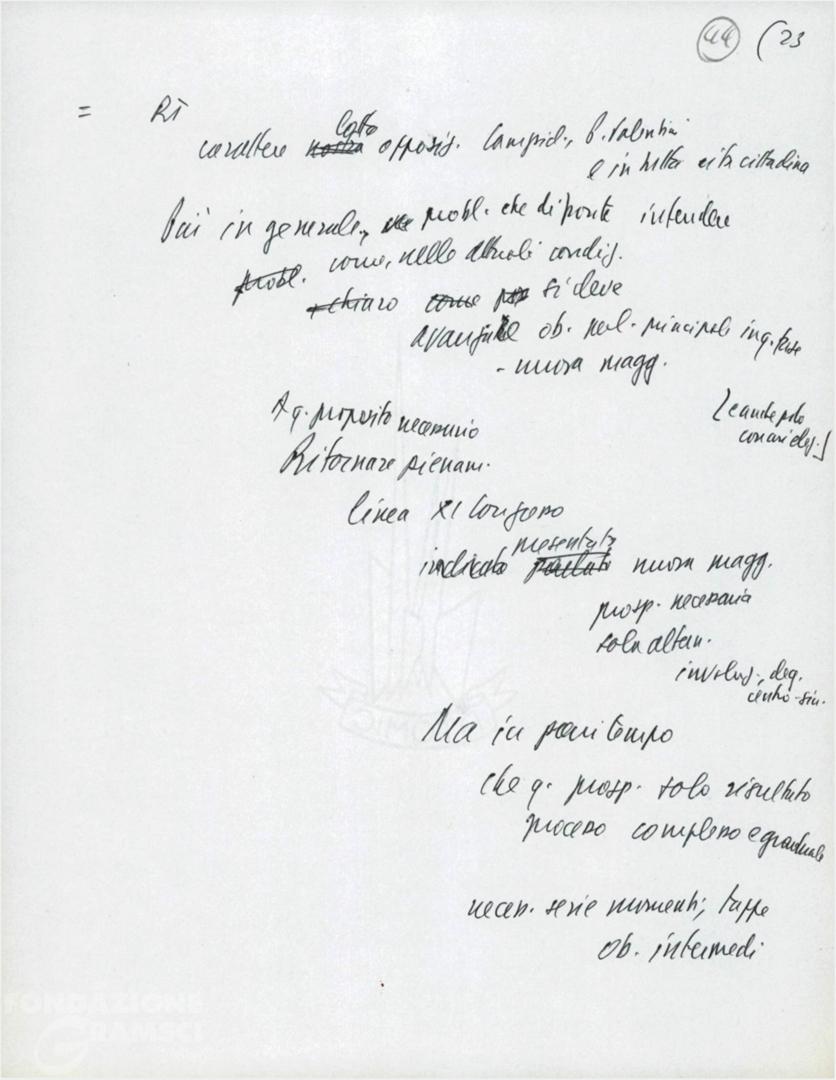 44 (23
= RI
lotta
carattere nostra opposiz. Campid., P. Valentini
e in tutta vita cittadina
Più in generale, probl. che di fronte intendere
probl. come, nelle attuali condiz.
chiaro come si deve
avanzare ob. pol. principale in q. fase
- nuova magg.
A q. proposito necessario
[e anche polo
Ritornare pienam.
linea XI Congresso
presentata
indicato nuova magg.
prosp. necessaria
sola altern.
involuz., deg.
centro-sin.
Ma in pari tempo
che q. prosp. solo risultato
processo complesso e graduale
necess. serie momenti, tappe
ob. intermedi
FONDAZIONE
GRAMSCI